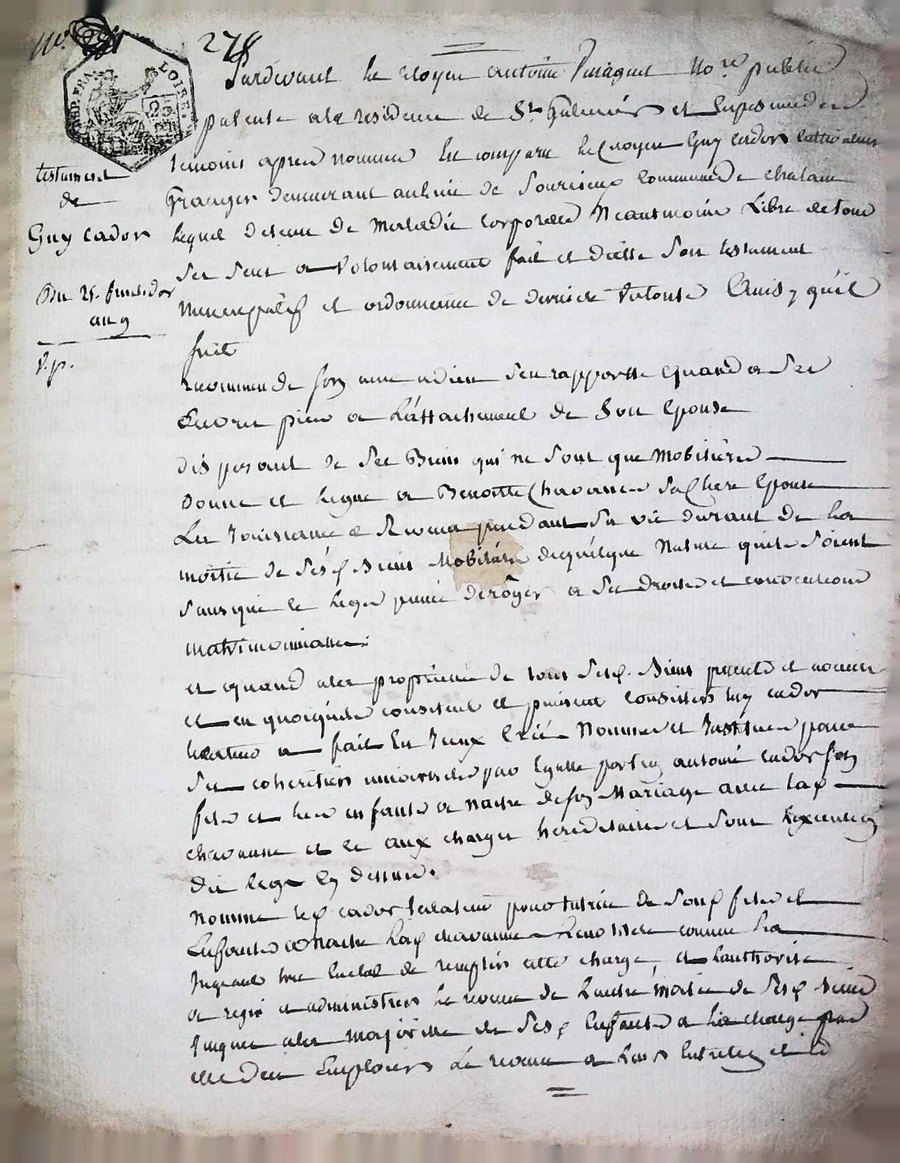 278
LOIRE.
testament
de
Guy cador
Du 25. fructidor
an 9
V.p.
Pardevant le citoyen antoine no.re public
patenté a la residence de St Galmier et en presence des
temoins apres nommés est comparu le Citoyen Guy cador cultivateur
Granger demeurant au lieu de Sourcieux Commune de chalain
lequel detenu de Maladie corporelle Neantmoins Libre de tous
Ses Sens a volontairement fait et dicté Son testament
Nuncupatif et ordonnance de derniere Volonté Ainsy qu'il
Suit
recommande son ame a dieu s'en rapporte quand a Ses
Œuvres pies a L'attachement de Son Epouse
disposant de Ses Biens qui ne Sont que Mobiliers
donne et legue a Benoitte Chavanne Sa Chere Epouse
Les Jouissance & Revenu pendant Sa vie durant de La
moitié de Sesd. Biens Mobiliers de quelque Nature quils Soient
Sans que le legs puisse déroger a Ses droits et conventions
matrimoniaux.
et quand a la proprieté de tous Sesd. Biens presents et avenir
et en quoiquils consistent et puissent consister Guy cador
testateur a fait Créé Nommé et Institué pour
Ses coheritiers universels par Egalle portion antoine cador son
fils et les enfants a naitre de son Mariage avec lad.
chavanne et ce aux charges hereditaires et Sous L'exécution
du legs cy dessus.
Nomme led. cador testateur pour tutrice de Sond. fils et
Enfants a naitre lad. chavanne Benoitte comme La
Jugeant tres en état de remplir cette charge, et L'authorise
a regir et administrer le revenu de L'autre Moitié de Sesd. Biens
Jusques a la majorité de Sesd. Enfants a la charge par
elle d'en Employer Le revenu a Leurs Entretien et